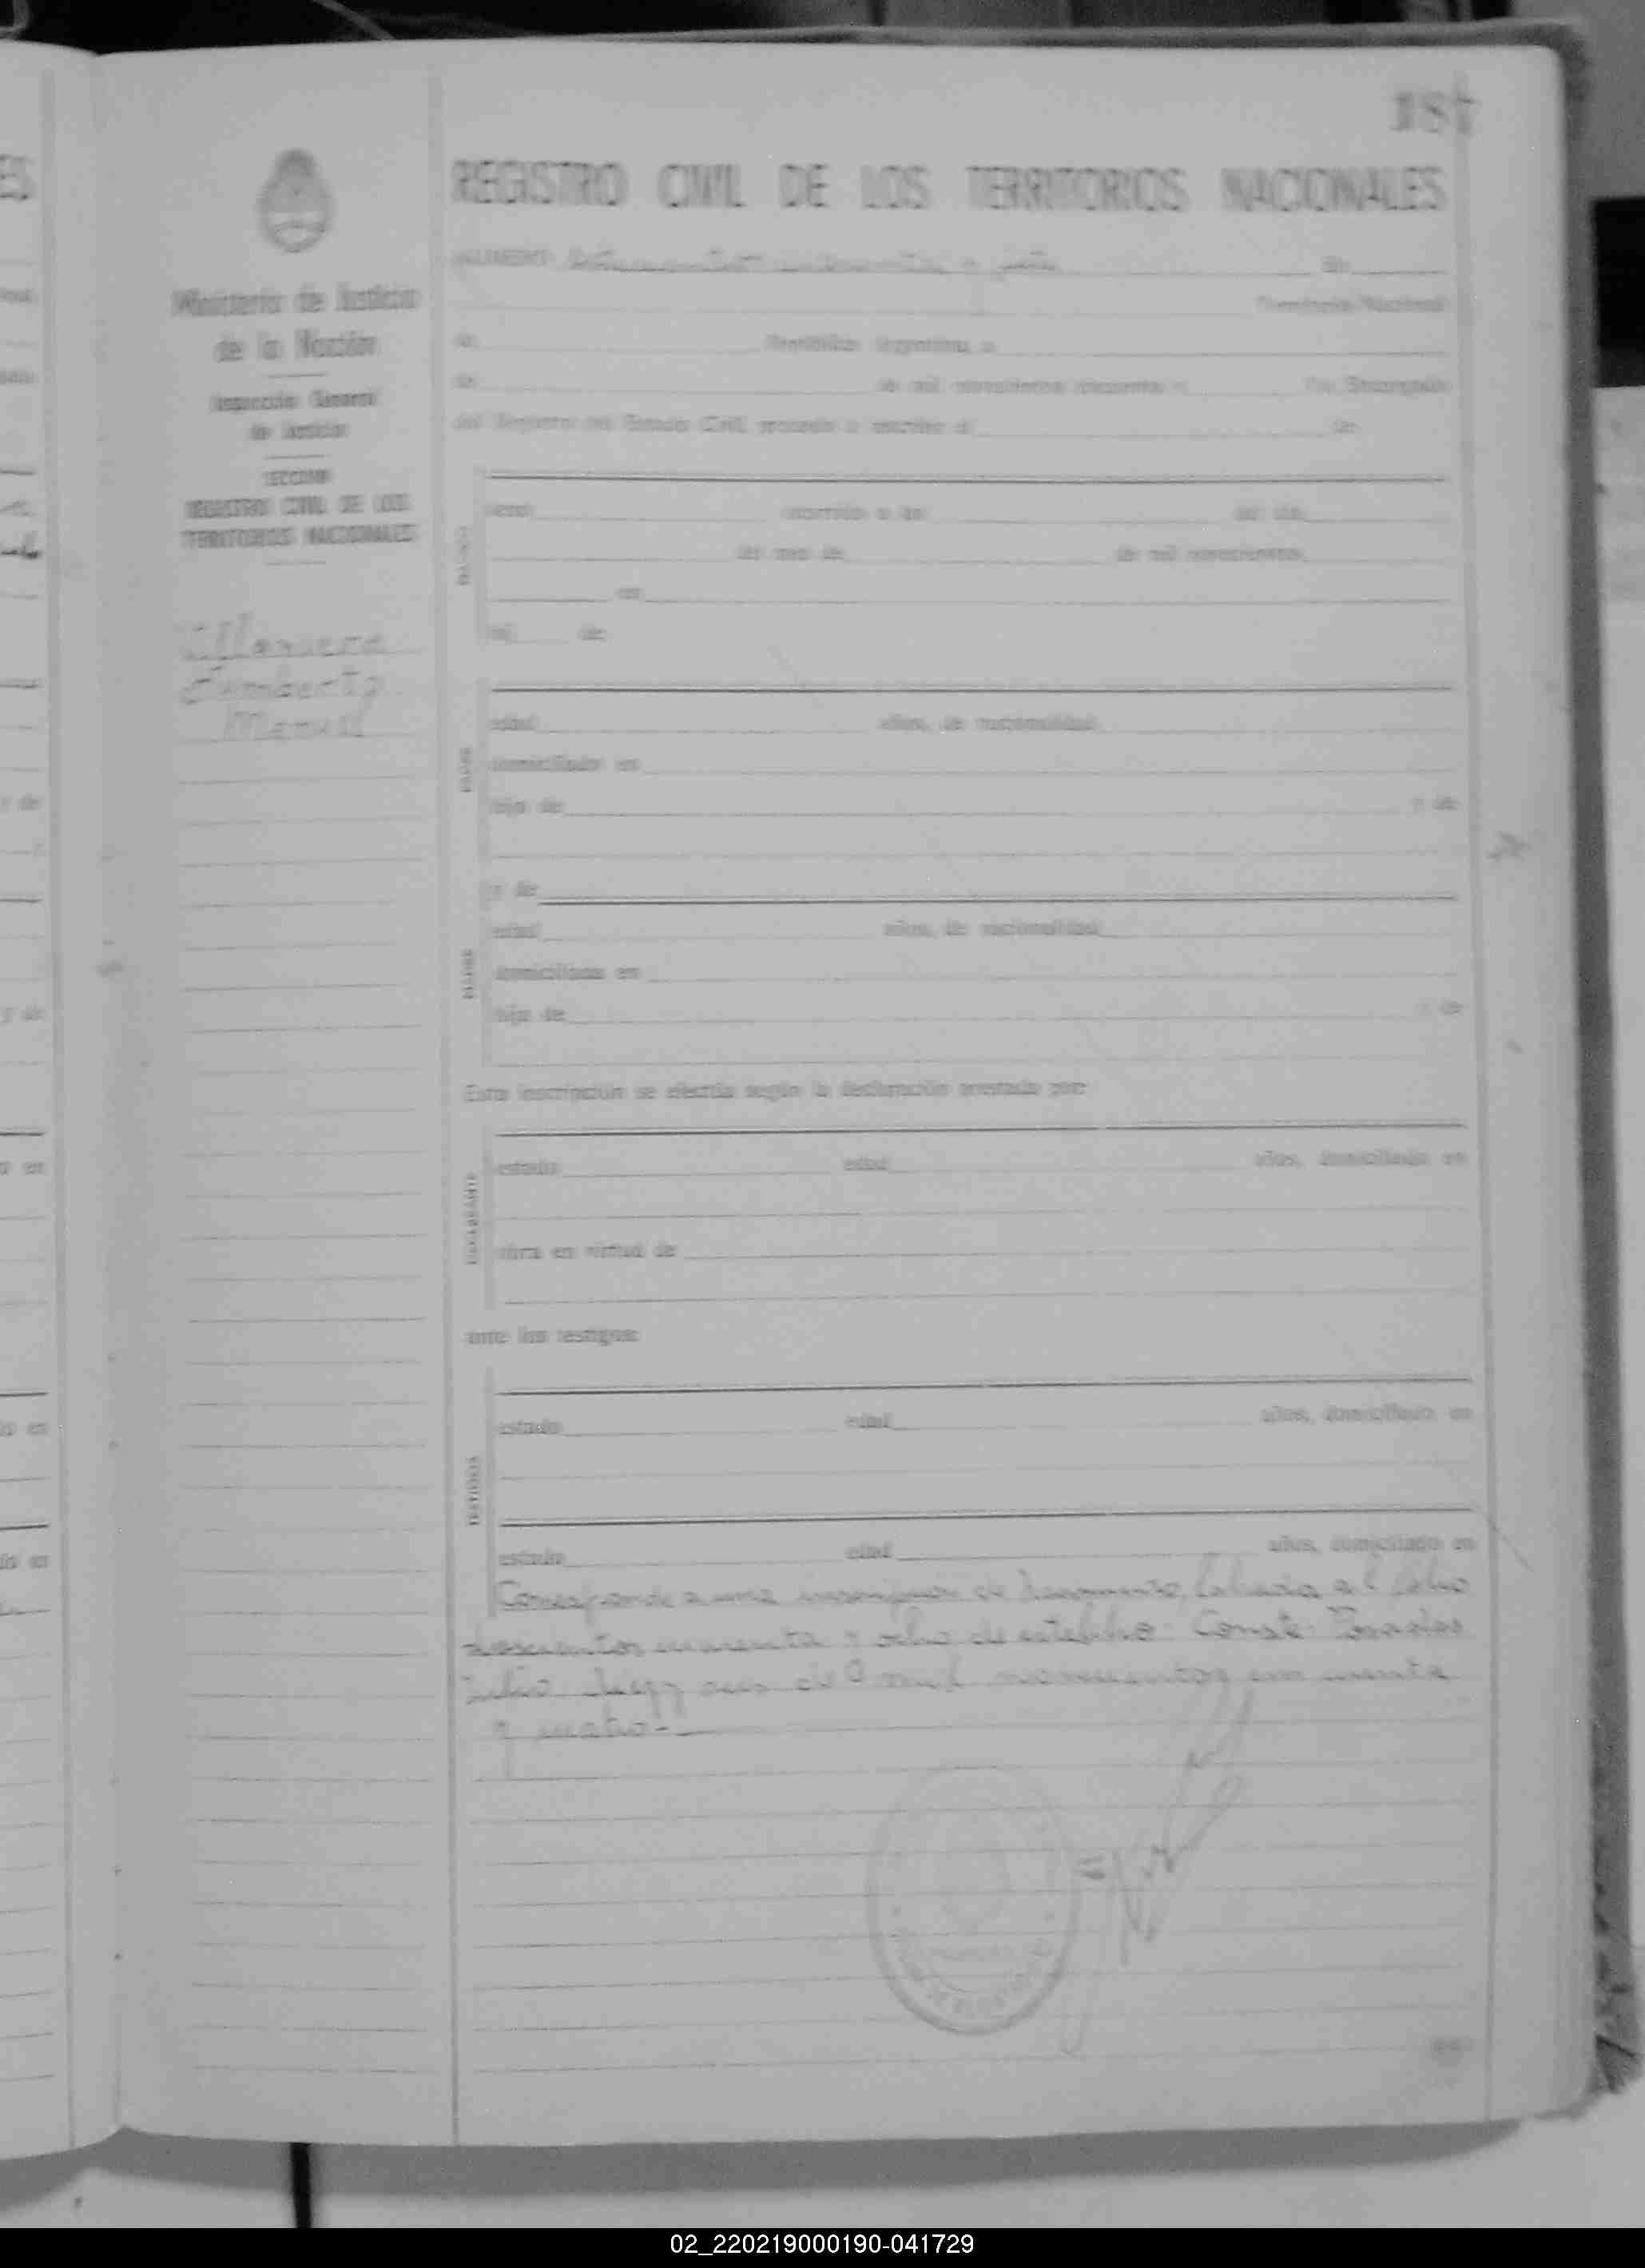 187
REGISTRO CIVIL DE LOS TERRITORIOS NACIONALES
NUMERO y de
Ministerio de Justicia
de la Nación
Inspección General
de Justicia
SECCION
REGISTRO CIVIL DE LOS
TERRITORIOS NACIONALES
Humberto
Manuel
Territorio Nacional
de República Argentina, a
de de mil novecientos cincuenta y Yo, Encargado
del Registro del Estado Civil, procedo a inscribir el de
sexo ocurrido a las del día
del mes de de mil novecientos
en
hij de
PADRE
edad años, de nacionalidad
domiciliado en
hijo de y de
y de
MADRE
edad años, de nacionalidad
domiciliada en
hija de y de
Esta inscripción se efectúa según la declaración prestada por:
DECLARANTE
estado edad años, domiciliado en
obra en virtud de
ante los testigos:
TESTIGOS
estado edad años, domiciliado en
estado edad años, domiciliado en
Corresponde a una inscripcion de labrada al folio
doscientos cuarenta y ocho de este libro. Conste. Posadas
Julio de mil novecientos cincuenta
y cuatro.-
02_220219000190-041729